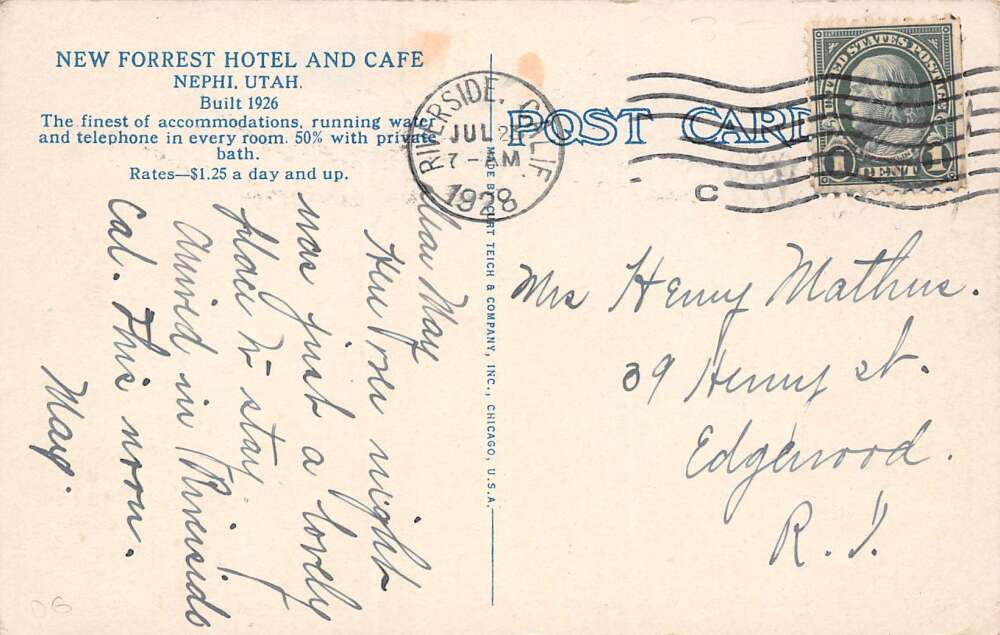 NEW FORREST HOTEL AND CAFE
NEPHI, UTAH.
Built 1926
The finest of accommodations, running water
and telephone in every room. 50% with private
bath.
Rates—$1.25 a day and up.
RIVERSIDE, CALIF.
JUL 2
7-AM
1928
C
UNITED STATES POSTAGE
1 CENT 1
POST CARD
MADE BY CURT TEICH & COMPANY, INC., CHICAGO, U.S.A.
Dear May
Here one night
was just a lovely
place to stay.
Arrived in Riverside
Cal. This noon.
May.
Mrs Henry Mathus.
39 Henry st.
Edgewood.
R.I.
06